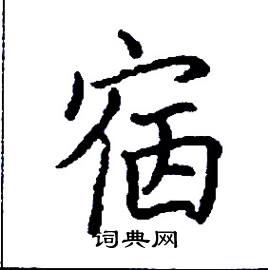 宿
词典网